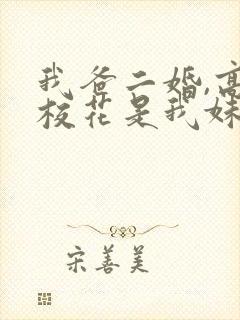 我爸二婚,高
校花是我妹
宋善美